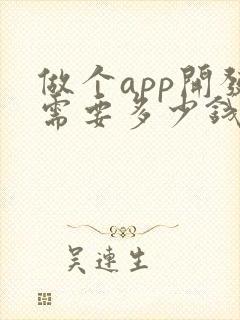 做个app開發
需要多少钱
吴連生